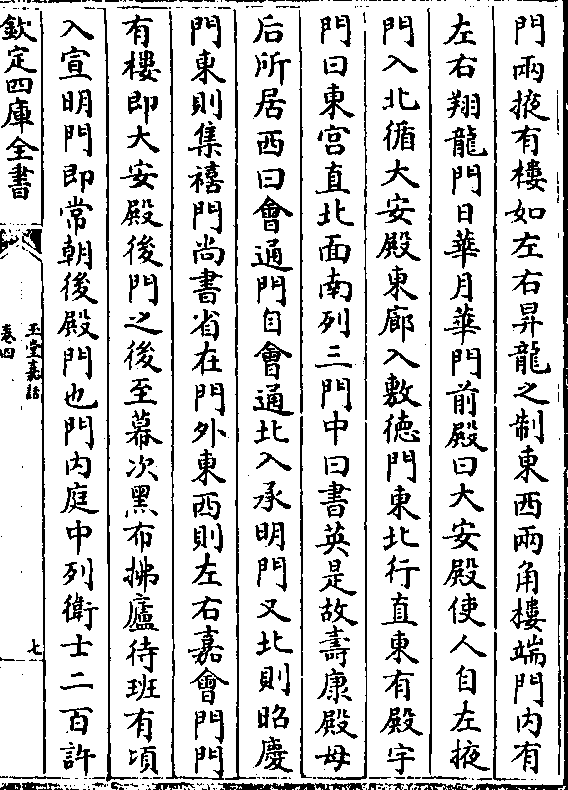 門兩掖有樓如左右昇龍之制東西兩角樓端門内有
左右翔龍門日華月華門前殿曰大安殿使人自左掖
門入北循大安殿東廊入敷徳門東北行直東有殿宇
門曰東宫直北面南列三門中曰書英是故壽康殿母
后所居西曰會通門自會通北入承明門又北則昭慶
門東則集禧門尚書省在門外東西則左右嘉會門門
有樓即大安殿後門之後至幕次黑布拂廬待班有頃
入宣明門即常朝後殿門也門内庭中列衛士二百許
欽定四庫全書
玉堂嘉話
卷四
七